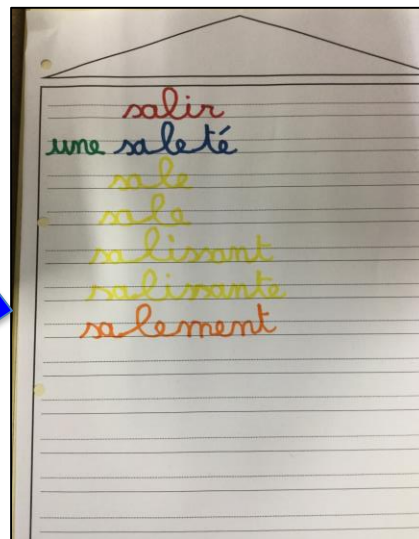 salir
une saleté
sale
sale
salissant
salissante
salement